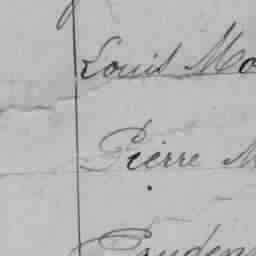 Louis Mo
Pierre M
Pruden